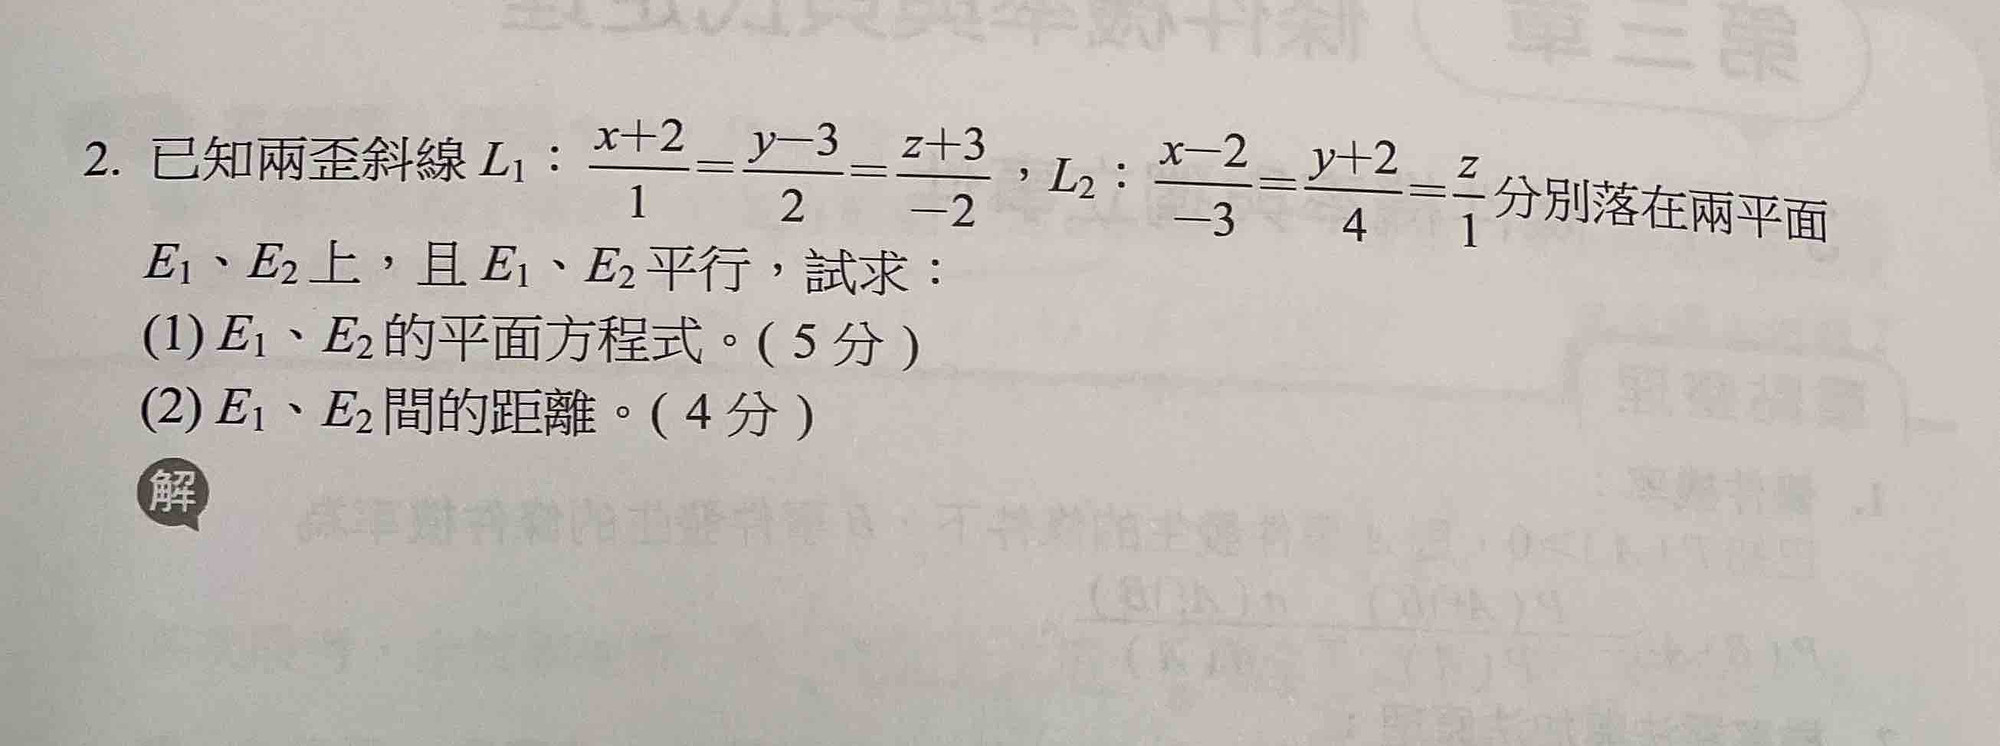 2. 已知兩歪斜線 L₁：(x+2)/1=(y−3)/2=(z+3)/−2，L₂：(x−2)/−3=(y+2)/4=z/1 分別落在兩平面
E₁、E₂上，且 E₁、E₂平行，試求：
(1) E₁、E₂的平面方程式。( 5 分 )
(2) E₁、E₂間的距離。( 4 分 )
解